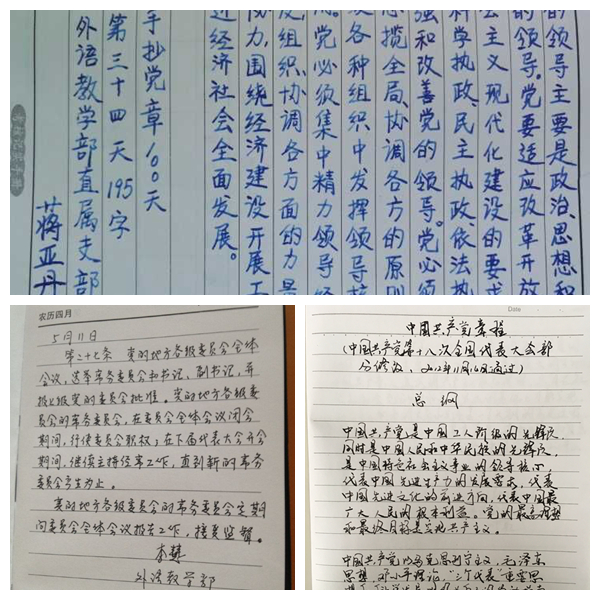 的领导主要是政治、思想和
的领导。党要适应改革开放
会主义现代化建设的要求
科学执政、民主执政、依法执
强和改善党的领导。党必须
总揽全局、协调各方的原则
各种组织中发挥领导核
党必须集中精力领导经
组织、协调各方面的力量
协力,围绕经济建设开展工
进经济社会全面发展。
手抄党章100天
第三十四天 195字
外语教学部直属支部
蒋亚丹
农历四月
5月11日
第二十七条 党的地方各级委员会全体
会议,选举常务委员会和书记、副书记,并
报上级党的委员会批准。党的地方各级委
员会的常务委员会,在委员会全体会议闭会
期间,行使委员会职权;在下届代表大会开会
期间,继续主持经常工作,直到新的常务
委员会产生为止。
党的地方各级委员会的常务委员会定期
向委员会全体会议报告工作,接受监督。
外语教学部
Date
中国共产党章程
(中国共产党第十八次全国代表大会部
分修改,2012年11月14日通过)
总纲
中国共产党是中国工人阶级的先锋队,
同时是中国人民和中华民族的先锋队,
是中国特色社会主义事业的领导核心,
代表中国先进生产力的发展要求,代表
中国先进文化的前进方向,代表中国最
广大人民的根本利益。党的最高理想
和最终目标是实现共产主义。
中国共产党以马克思列宁主义、毛泽东
思想、邓小平理论、“三个代表”重要思